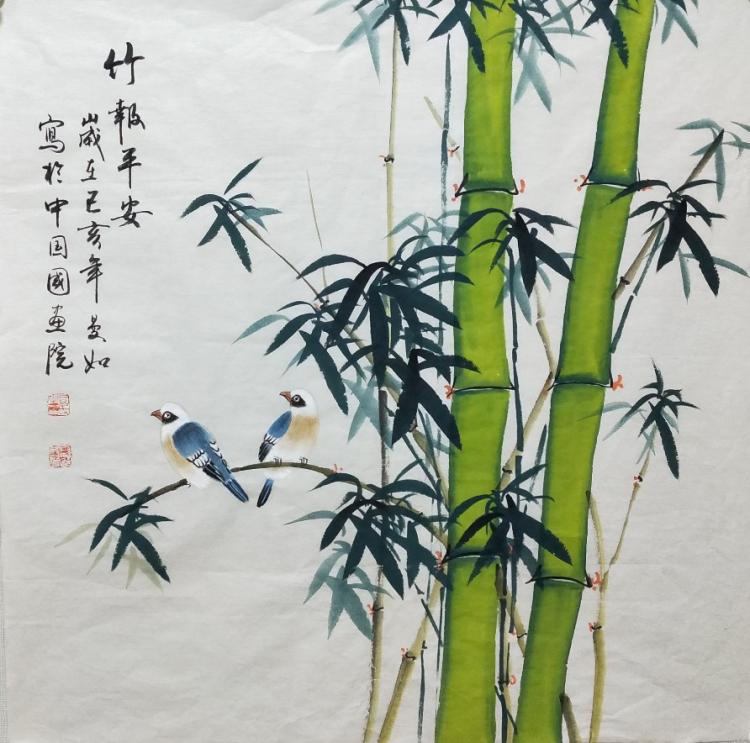 竹報平安
歲在己亥年曼如
寫於中国國畫院